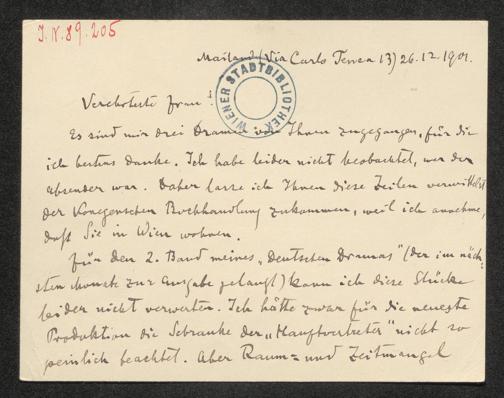 J.N. 89.205
Mailand (Via Carlo Tenca 13) 26.12.1901.
WIENER STADTBIBLIOTHEK
Verehrteste Frau!
Es sind mir drei Dramen von Ihnen zugegangen, für die
ich bestens danke. Ich habe leider nicht beobachtet, wer der
Absender war. Daher lasse ich Ihnen diese Zeilen vermittelst
der Konegenschen Buchhandlung zukommen, weil ich annehme,
daß Sie in Wien wohnen.
Für den 2. Band meines „Deutschen Dramas" (der im näch-
sten Monate zur Ausgabe gelangt) kann ich diese Stücke
leider nicht verwerten. Ich hätte zwar für die neueste
Produktion die Schranke der „Hauptvertreter" nicht so
peinlich beachtet. Aber Raum= und Zeitmangel